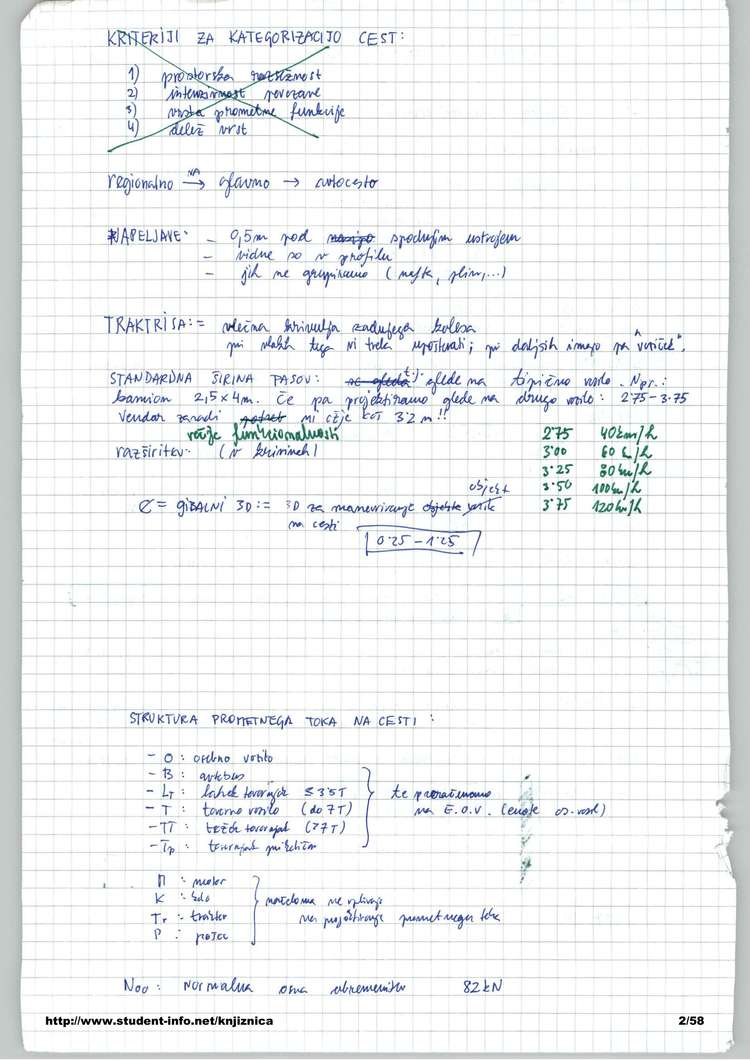 KRITERIJI ZA KATEGORIZACIJO CEST:
1) prostorska razsežnost
2) intenzivnost povezave
3) vrsta prometne funkcije
4) delež vrst
regionalno NA → glavno → avtocesto
NAPELJAVE: - 0,5m pod spodnjim ustrojem
- vidne so v profilu
- jih ne grupiramo (nafta, plin,...)
TRAKTRISA:= vlečna krivulja zadnjega kolesa
pri vlakih tega ni treba upoštevati; pri daljših imajo pa "voziček".
STANDARDNA ŠIRINA PASOV: t.j. glede na tipično vozilo. Npr.:
kamion 2,5 x 4m. Če pa projektiramo glede na drugo vozilo: 2.75 - 3.75
Vendar zaradi ni ožje kot 3.2 m!!
večje funkcionalnosti
razširitev (v krivinah)
2.75 40 km/h
3.00 60 km/h
3.25 80 km/h
3.50 100 km/h
3.75 120 km/h
objekt
e = GIBALNI 3D := 3D za manevriranje
na cesti
0.25 - 1.25
STRUKTURA PROMETNEGA TOKA NA CESTI:
- O : osebno vozilo
- B : avtobus
- LT : lahek tovornjak ≤ 3.5T
- T : tovorno vozilo (do 7T)
- TT : težek tovornjak (>7T)
- Tp : tovornjak prikoličar
te preračunamo
na E.O.V. (enote os. vozil)
M : motor
K : kolo
Tr : traktor
P : pešec
načeloma ne vplivajo
na prometnega toka
Noo : Normalna osna obremenitev 82 kN
http://www.student-info.net/knjiznica
2/58